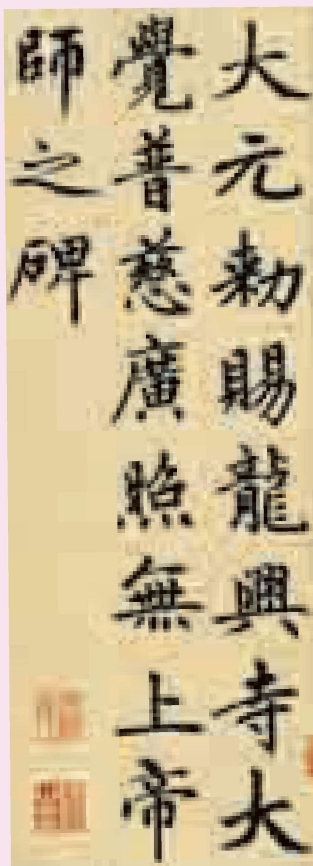 大元勅賜龍興寺大
覺普慈廣照無上帝
師之碑